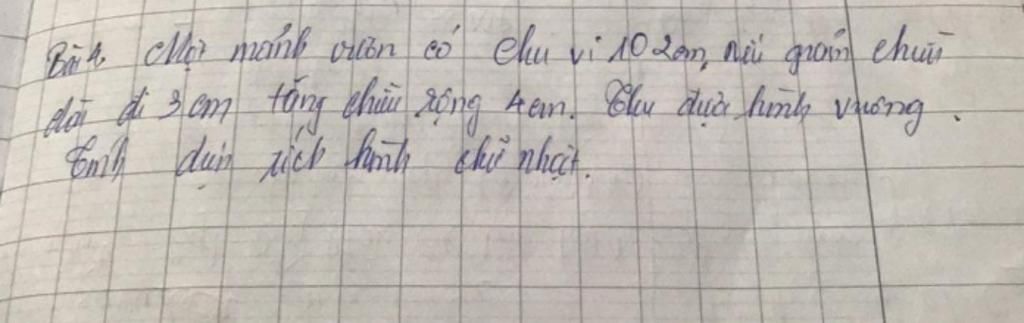 Bài 4 Một mảnh vườn có chu vi 102cm, nếu giảm chiều
dài đi 3cm tăng chiều rộng 4cm. Thu được hình vuông.
Tính diện tích hình chữ nhật.